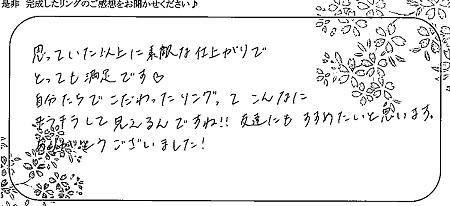 是非 完成したリングのご感想をお聞かせください♪
思っていた以上に素敵な仕上がりで
とっても満足です♡
自分たちでこだわったリングって こんなに
キラキラして見えるんですね!! 友達にもすすめたいと思います。
ありがとうございました!